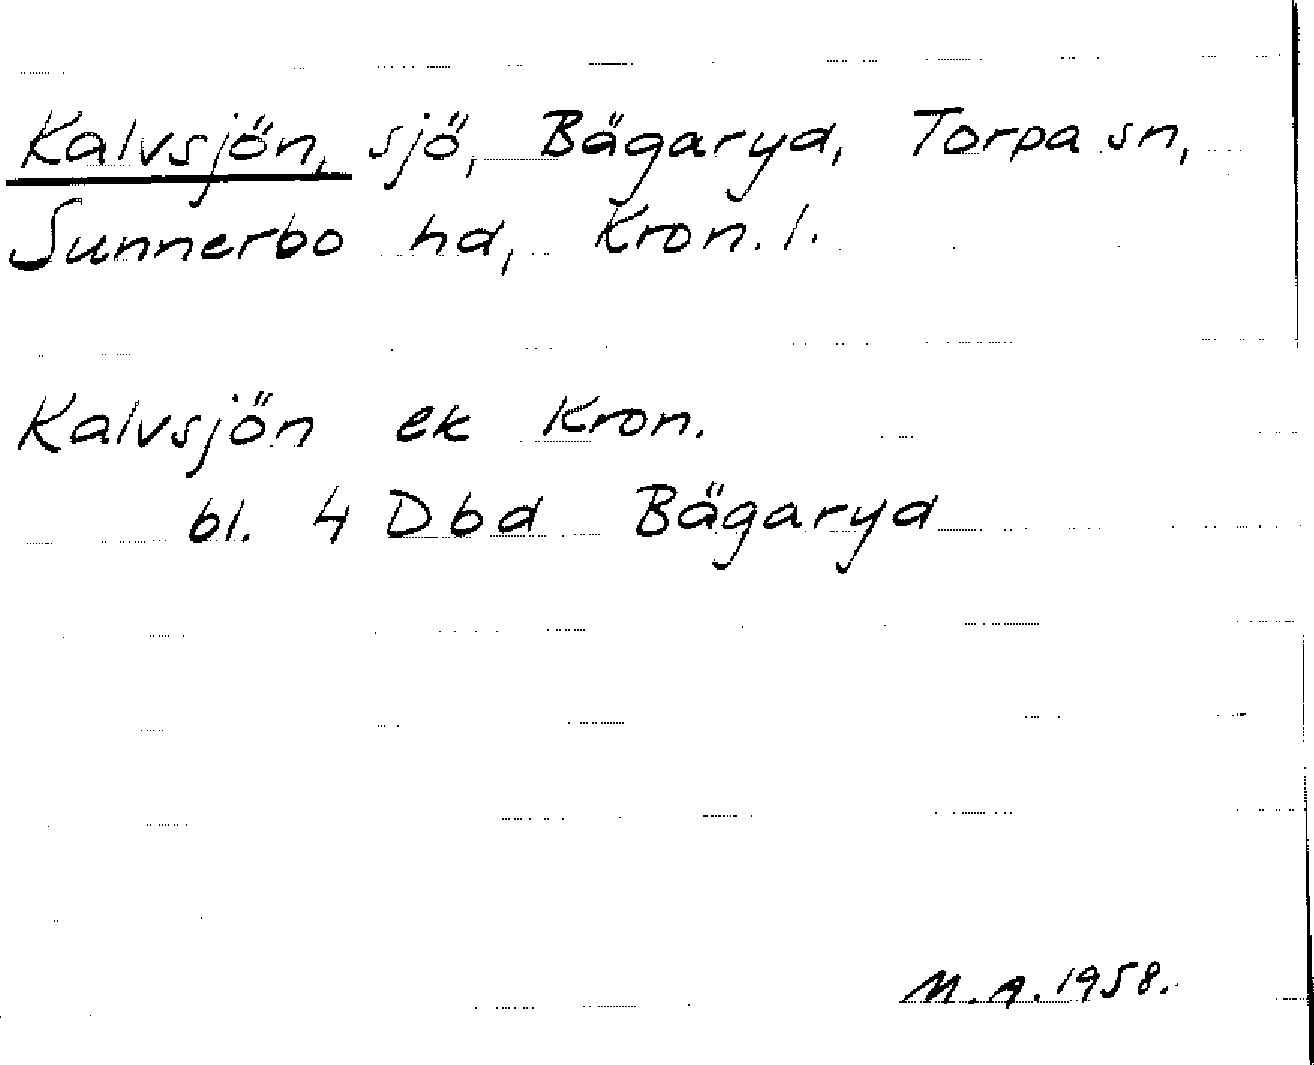 Kalvsjön, sjö, Bägaryd, Torpa sn,
Sunnerbo hd, Kron. l.
Kalvsjön ek Kron.
bl. 4 Dbd Bägaryd
M.A. 1958.